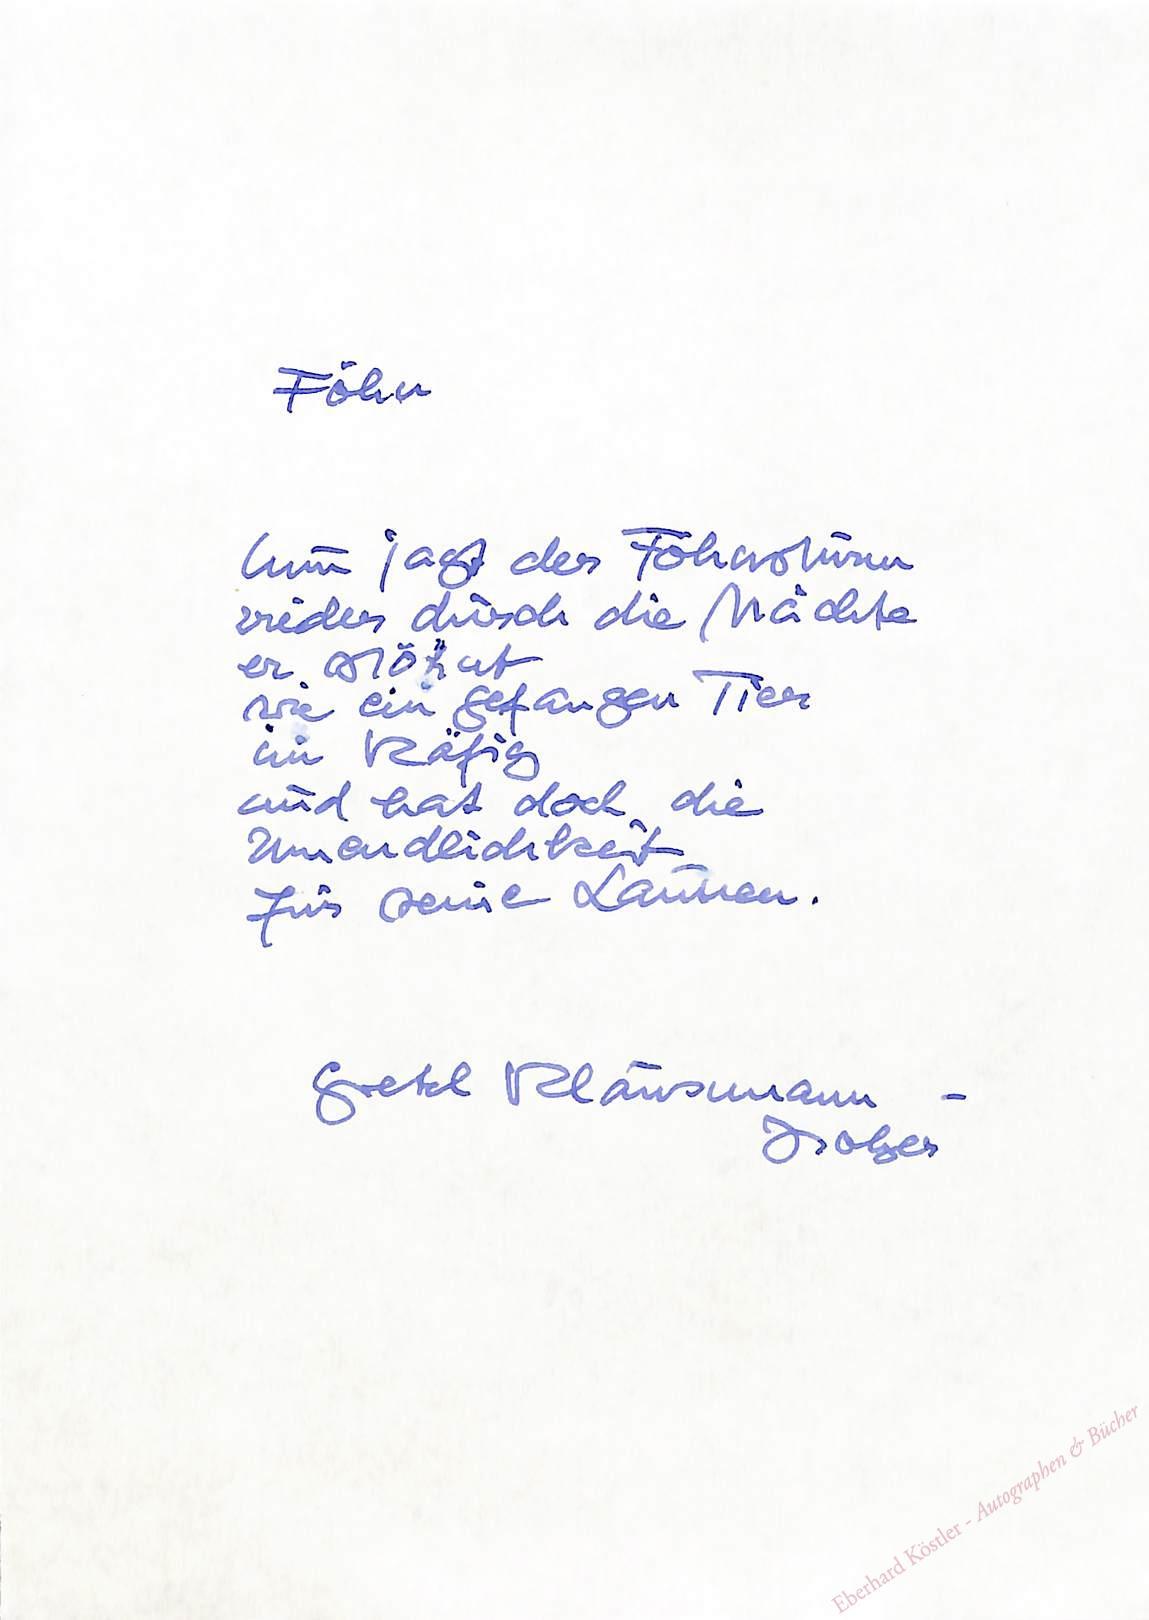 Föhn
Nun jagt der Föhnsturm
wieder durch die Nächte
er stöhnt
wie ein gefangen Tier
im Käfig
und hat doch die
Unendlichkeit
für seine Launen.
Gretel Klausmann -
Eberhard Köstler - Autographen & Bücher